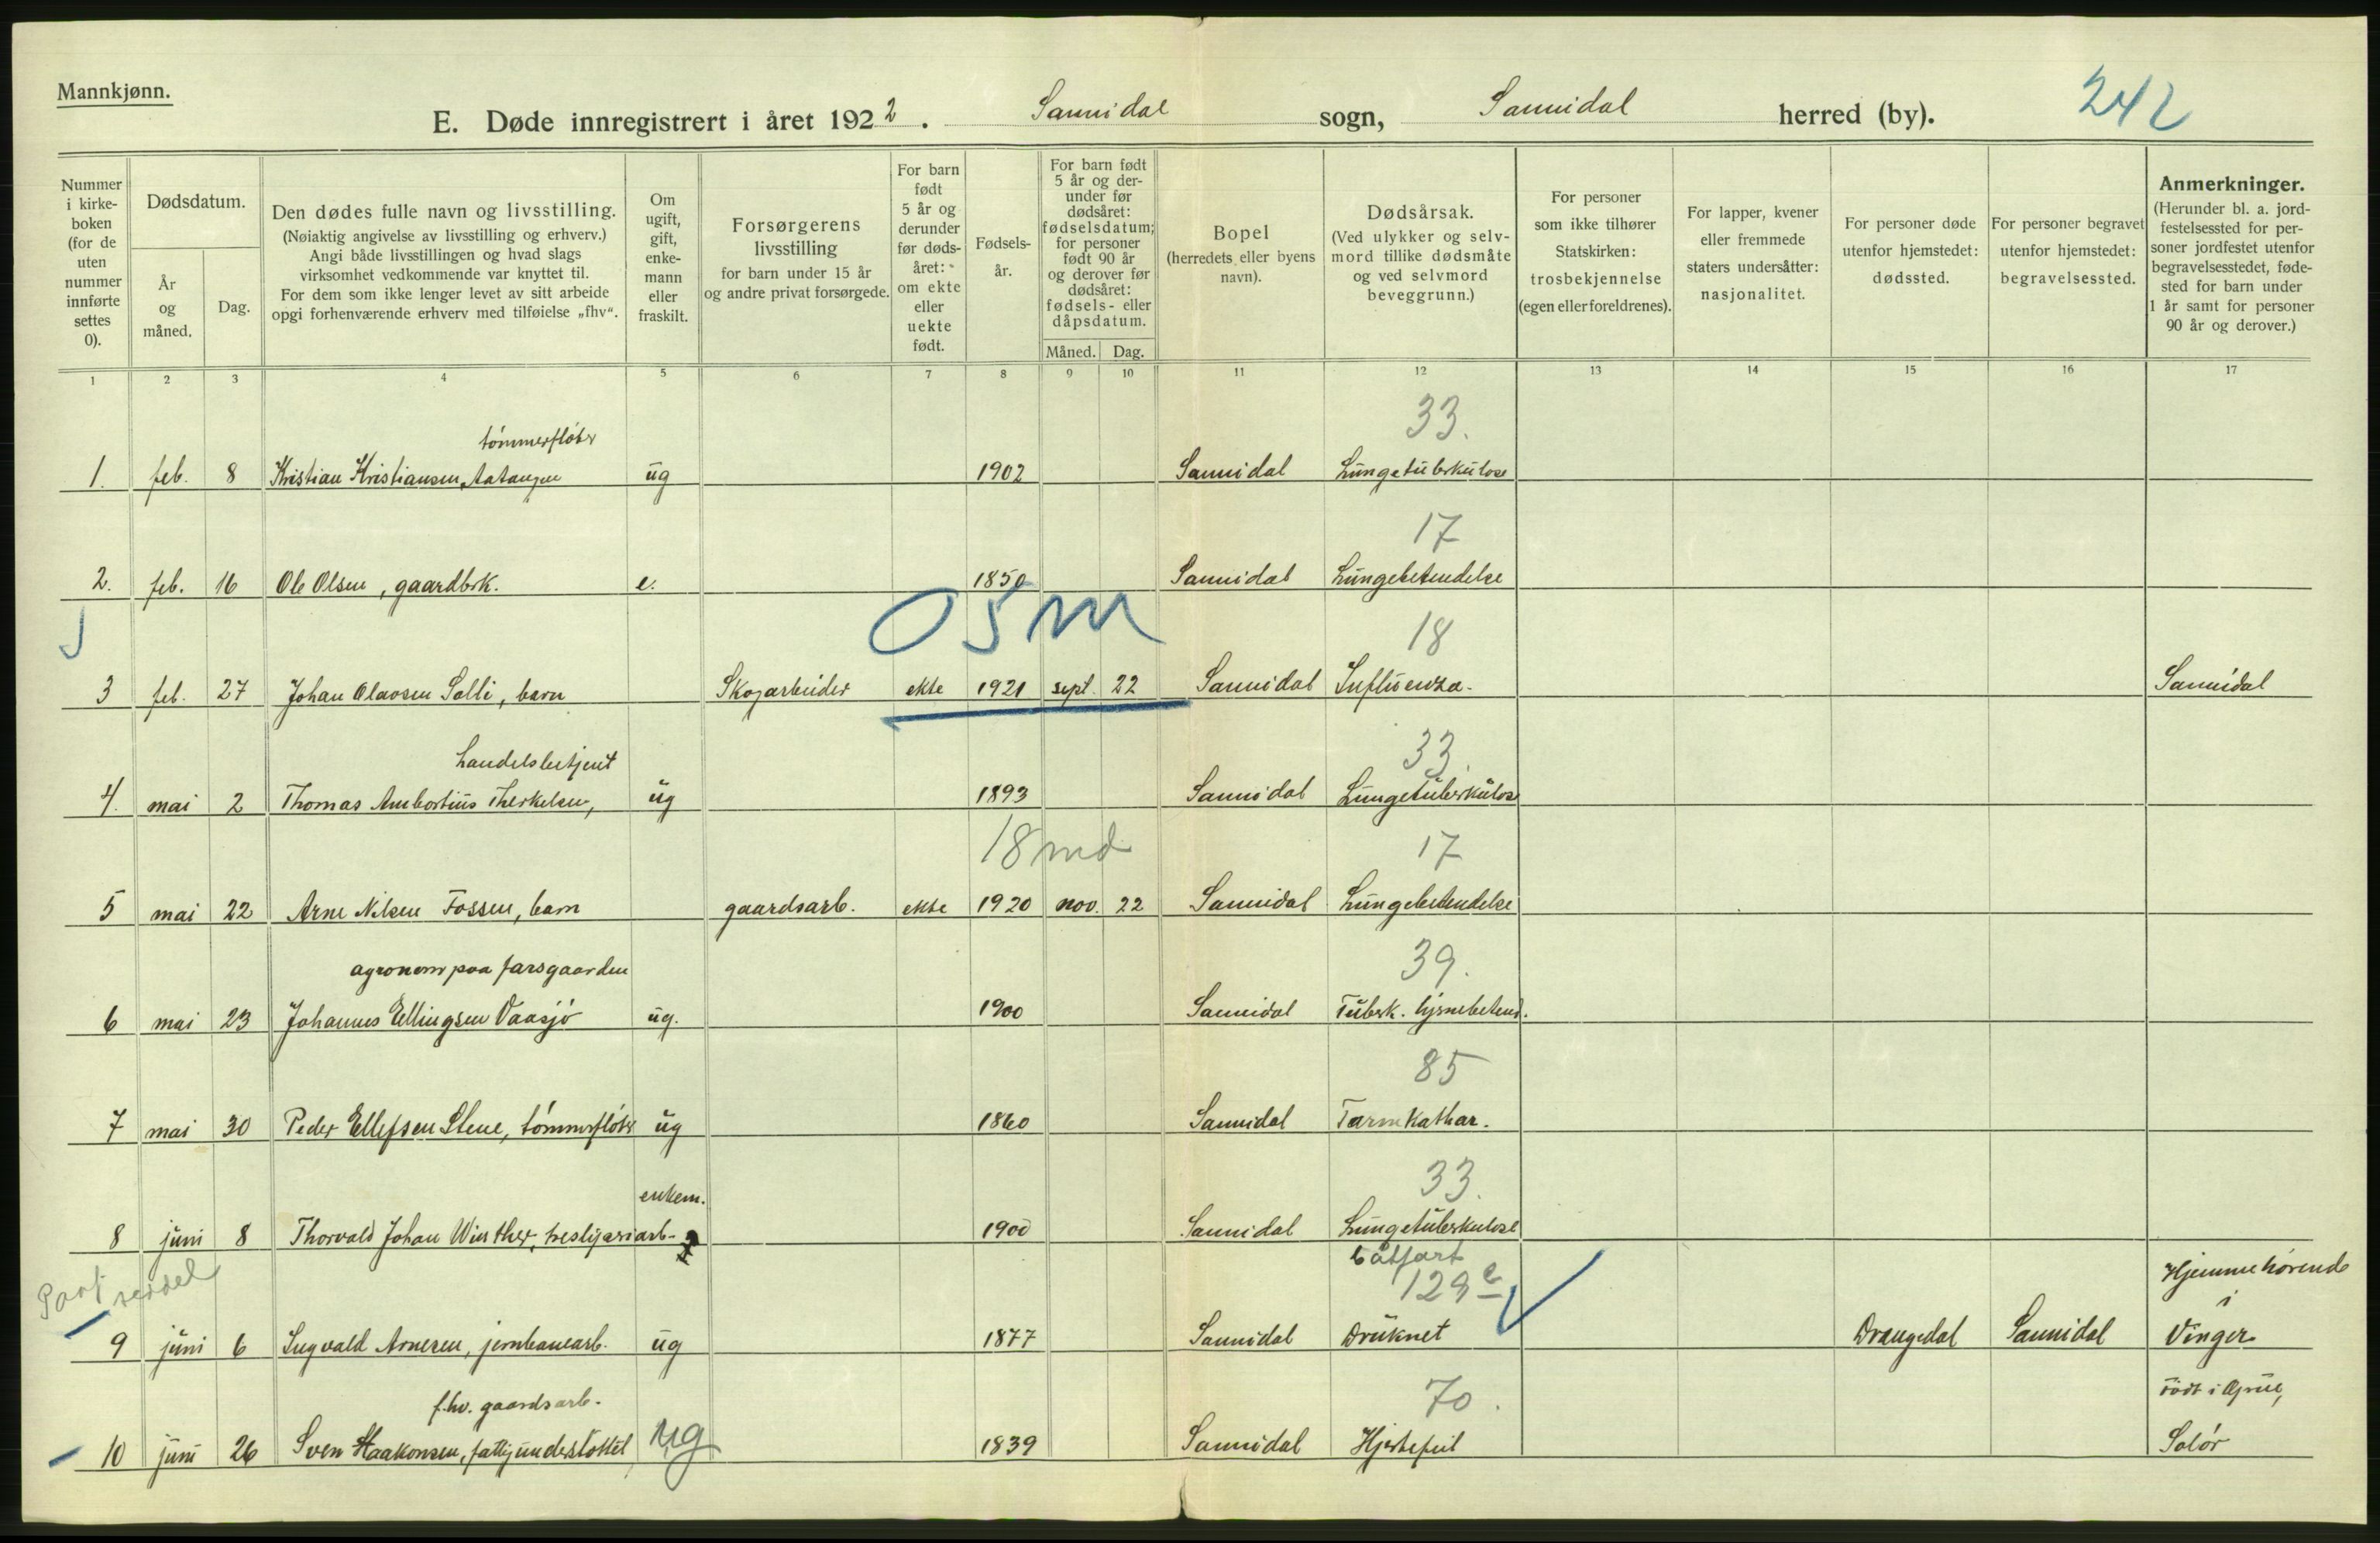 Mannkjønn.
E. Døde innregistrert i året 1922. Sannidal sogn, Sannidal herred (by). 242
Nummer i kirkeboken (for de uten nummer innførte settes 0).
Dødsdatum.
År og måned.
Dag.
Den dødes fulle navn og livsstilling.
(Nøiaktig angivelse av livsstilling og erhverv.)
Angi både livsstillingen og hvad slags
virksomhet vedkommende var knyttet til.
For dem som ikke lenger levet av sitt arbeide
opgi forhenværende erhverv med tilføielse „fhv“.
Om ugift, gift, enkemann eller fraskilt.
Forsørgerens livsstilling
for barn under 15 år
og andre privat forsørgede.
For barn født 5 år og derunder før dødsåret: om ekte eller uekte født.
Fødselsår.
For barn født 5 år og derunder før dødsåret: fødselsdatum; for personer født 90 år og derover før dødsåret: fødsels- eller dåpsdatum.
Måned. Dag.
Bopel
(herredets eller byens navn).
Dødsårsak.
(Ved ulykker og selvmord tillike dødsmåte og ved selvmord beveggrunn.)
For personer som ikke tilhører Statskirken: trosbekjennelse (egen eller foreldrenes).
For lapper, kvener eller fremmede staters undersåtter: nasjonalitet.
For personer døde utenfor hjemstedet: dødssted.
For personer begravet utenfor hjemstedet: begravelsessted.
Anmerkninger.
(Herunder bl. a. jordfestelsessted for personer jordfestet utenfor begravelsesstedet, fødested for barn under 1 år samt for personer 90 år og derover.)
1 2 3 4 5 6 7 8 9 10 11 12 13 14 15 16 17
tømmerfløter 33.
1. feb. 8 Kristian Kristiansen, ug 1902 Sannidal Lungetuberkulose
17
2. feb. 16 Ole Olsen, gaardbrk. e. 1850 Sannidal Lungebetendelse
05m 18
3 feb. 27 Johan Olavsen Solli, barn Skogarbeider ekte 1921 sept. 22 Sannidal Influenza. Sannidal
handelsbetjent 33.
4. mai 2 Thomas Ambortius Therkelsen, ug 1893 Sannidal Lungetuberkulose
18 md 17
5 mai 22 Arne Nilsen Fossen, barn gaardsarb. ekte 1920 nov. 22 Sannidal Lungebetendelse
agronom paa farsgaarden 39.
6 mai 23 Johannes Ellingsen Vaasjø ug. 1900 Sannidal Tuberk. hjernebetend.
85
7 mai 30 Peder Ellefsen Stene, tømmerfløter ug 1860 Sannidal Tarmkathar.
enkem. 33.
8 juni 8 Thorvald Johan Winther, tresliperiarb. 1900 Sannidal Lungetuberkulose
båtfart
129 e Hjemmehørende i
9 juni 6 Ingvald Arnesen, jernbanearb. ug 1877 Sannidal Druknet Drangedal Sannidal Vinger
f.hv. gaardsarb. 70. født i Grue,
10 juni 26 Sven Haakonsen, fattigunderstøttet ug 1839 Sannidal Hjertefeil Solør